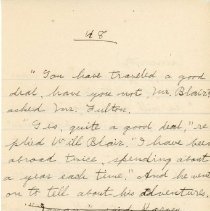 "You have traveled a good
deal, have you not, Mr. Blair
asked Mr. Fulton.
"Yes, quite a good deal," re-
plied Will Blair. "I have been
abroad twice, spending about
a year each time." And he went
on to tell about his adventures.